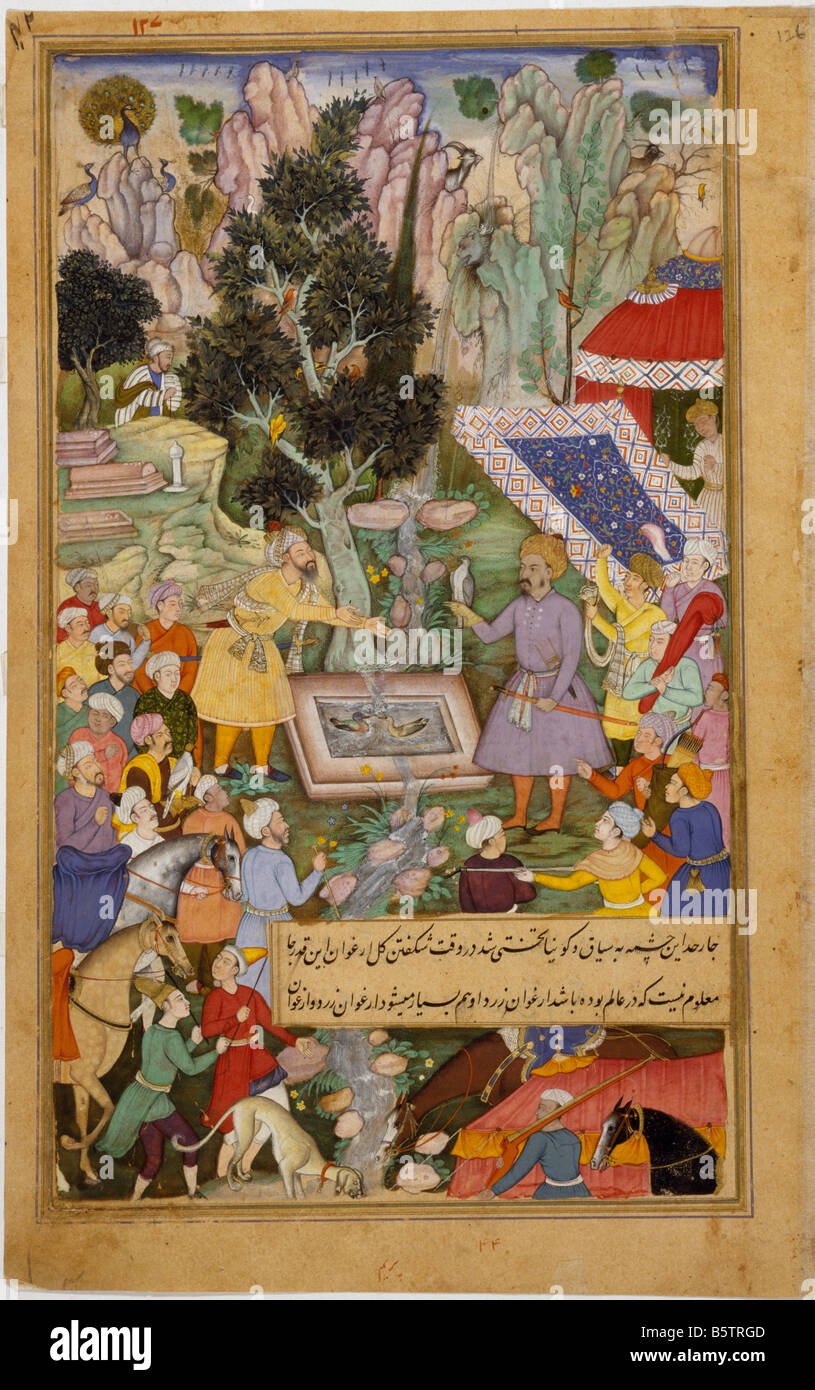 126
۱۲۷
جار حد این چشمه به سیاق و کونیا تختی شد در وقت شکفتن کل ارغوان این قدر جا
معلوم نیست که در عالم بوده باشد ارغوان زرد او هم بسیار میشود ارغوان زرد و ارغوان
۴۴
alamy
Image ID: B5TRGD
www.alamy.com